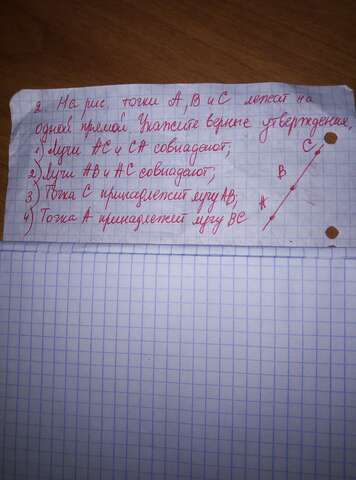 2. На рис. точки А, В и С лежат на
одной прямой. Укажите верные утверждения,
1) Лучи АС и СА совпадают;
2) Лучи АВ и АС совпадают;
3) Точка С принадлежит лучу АВ;
4) Точка А принадлежит лучу ВС
С
В
А